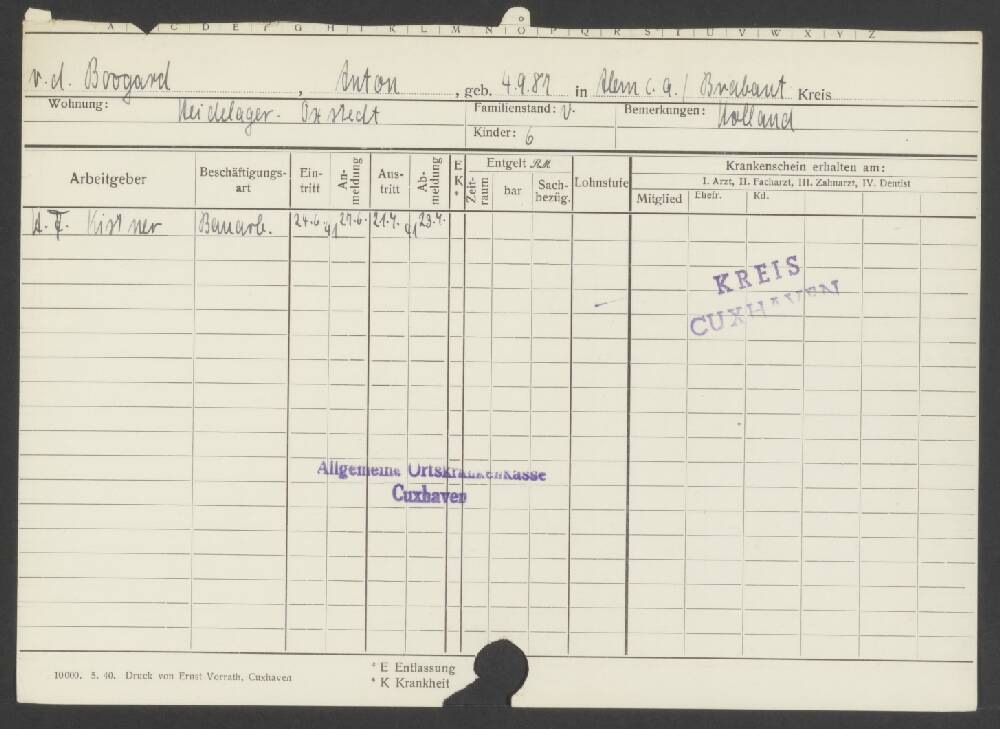 A C D E F G H I K L M N O P Q R S T U V W X Y Z
v. d. Boogard, Anton, geb. 4.9.87 in Alem c. a. / Brabant Kreis
Wohnung: Heidelager - Oxstedt Familienstand: v. Bemerkungen: Holland
Kinder: 6
Arbeitgeber Beschäftigungs-art Ein-tritt An-meldung Aus-tritt Ab-meldung E K * Entgelt RM. Zeit-raum bar Sach-bezüg. Lohnstufe Krankenschein erhalten am:
I. Arzt, II. Facharzt, III. Zahnarzt, IV. Dentist
Mitglied Ehefr. Kd.
Kistner Bauarb. 24.6. 41 27.6. 21.7. 41 23.7.
KREIS
CUXHAVEN
Allgemeine Ortskrankenkasse
Cuxhaven
* E Entlassung
* K Krankheit
10000. 5. 40. Druck von Ernst Vorrath, Cuxhaven